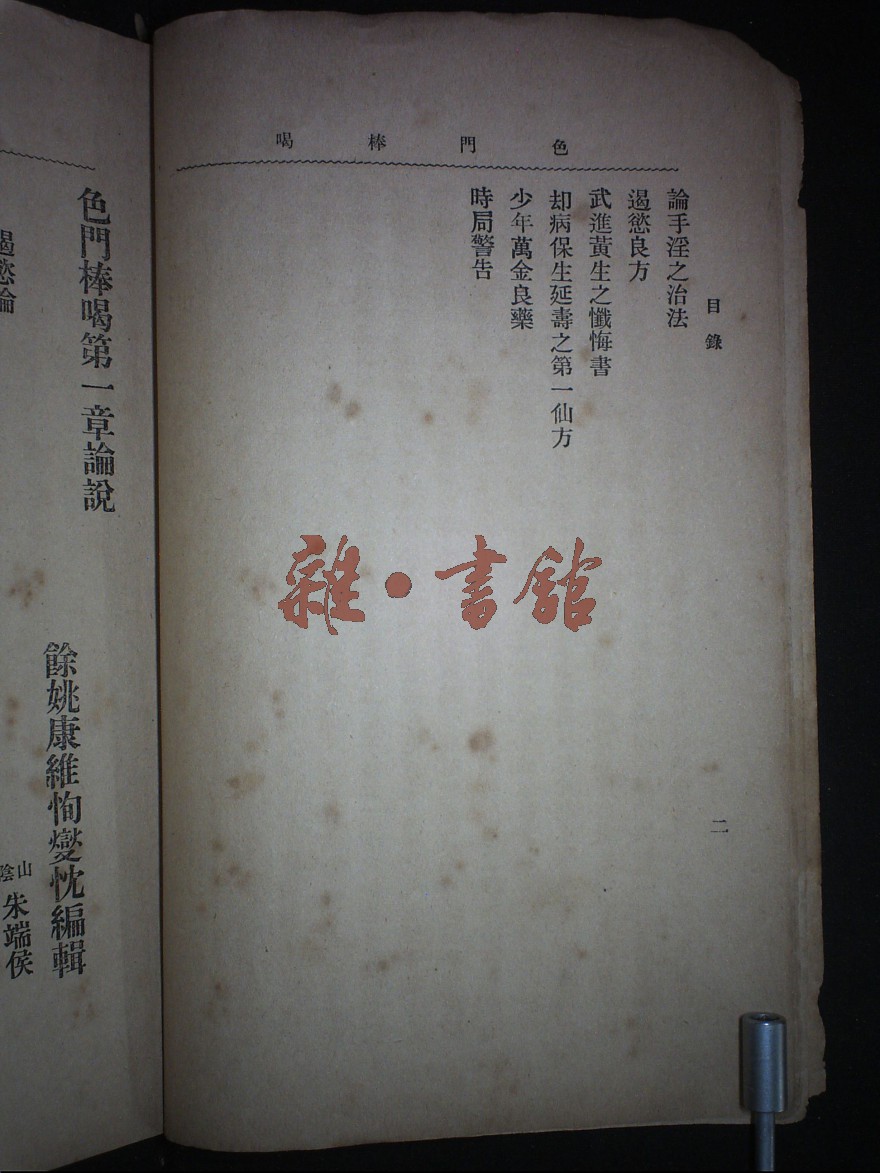 色門棒喝
目錄
二
論手淫之治法
遏慾良方
武進黃生之懺悔書
却病保生延壽之第一仙方
少年萬金良藥
時局警告
雜·書館
色門棒喝第一章論說
餘姚康維恂燮忱編輯
山陰朱端侯
遏慾論